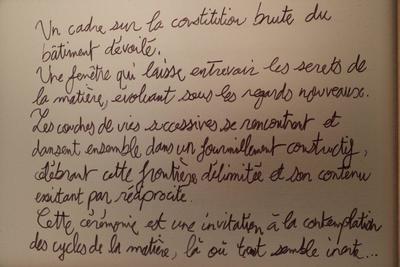 Un cadre sur la constitution brute du
bâtiment dévoilé.
Une fenêtre qui laisse entrevoir les secrets de
la matière, evoluant sous les regards nouveaux.
Les couches de vies successives se rencontrent et
dansent ensemble dans un fourmillement constructif,
célébrant cette frontière délimitée et son contenu
existant par réciprocité.
Cette cérémonie est une invitation à la contemplation
des cycles de la matière, là où tout semble inerte...